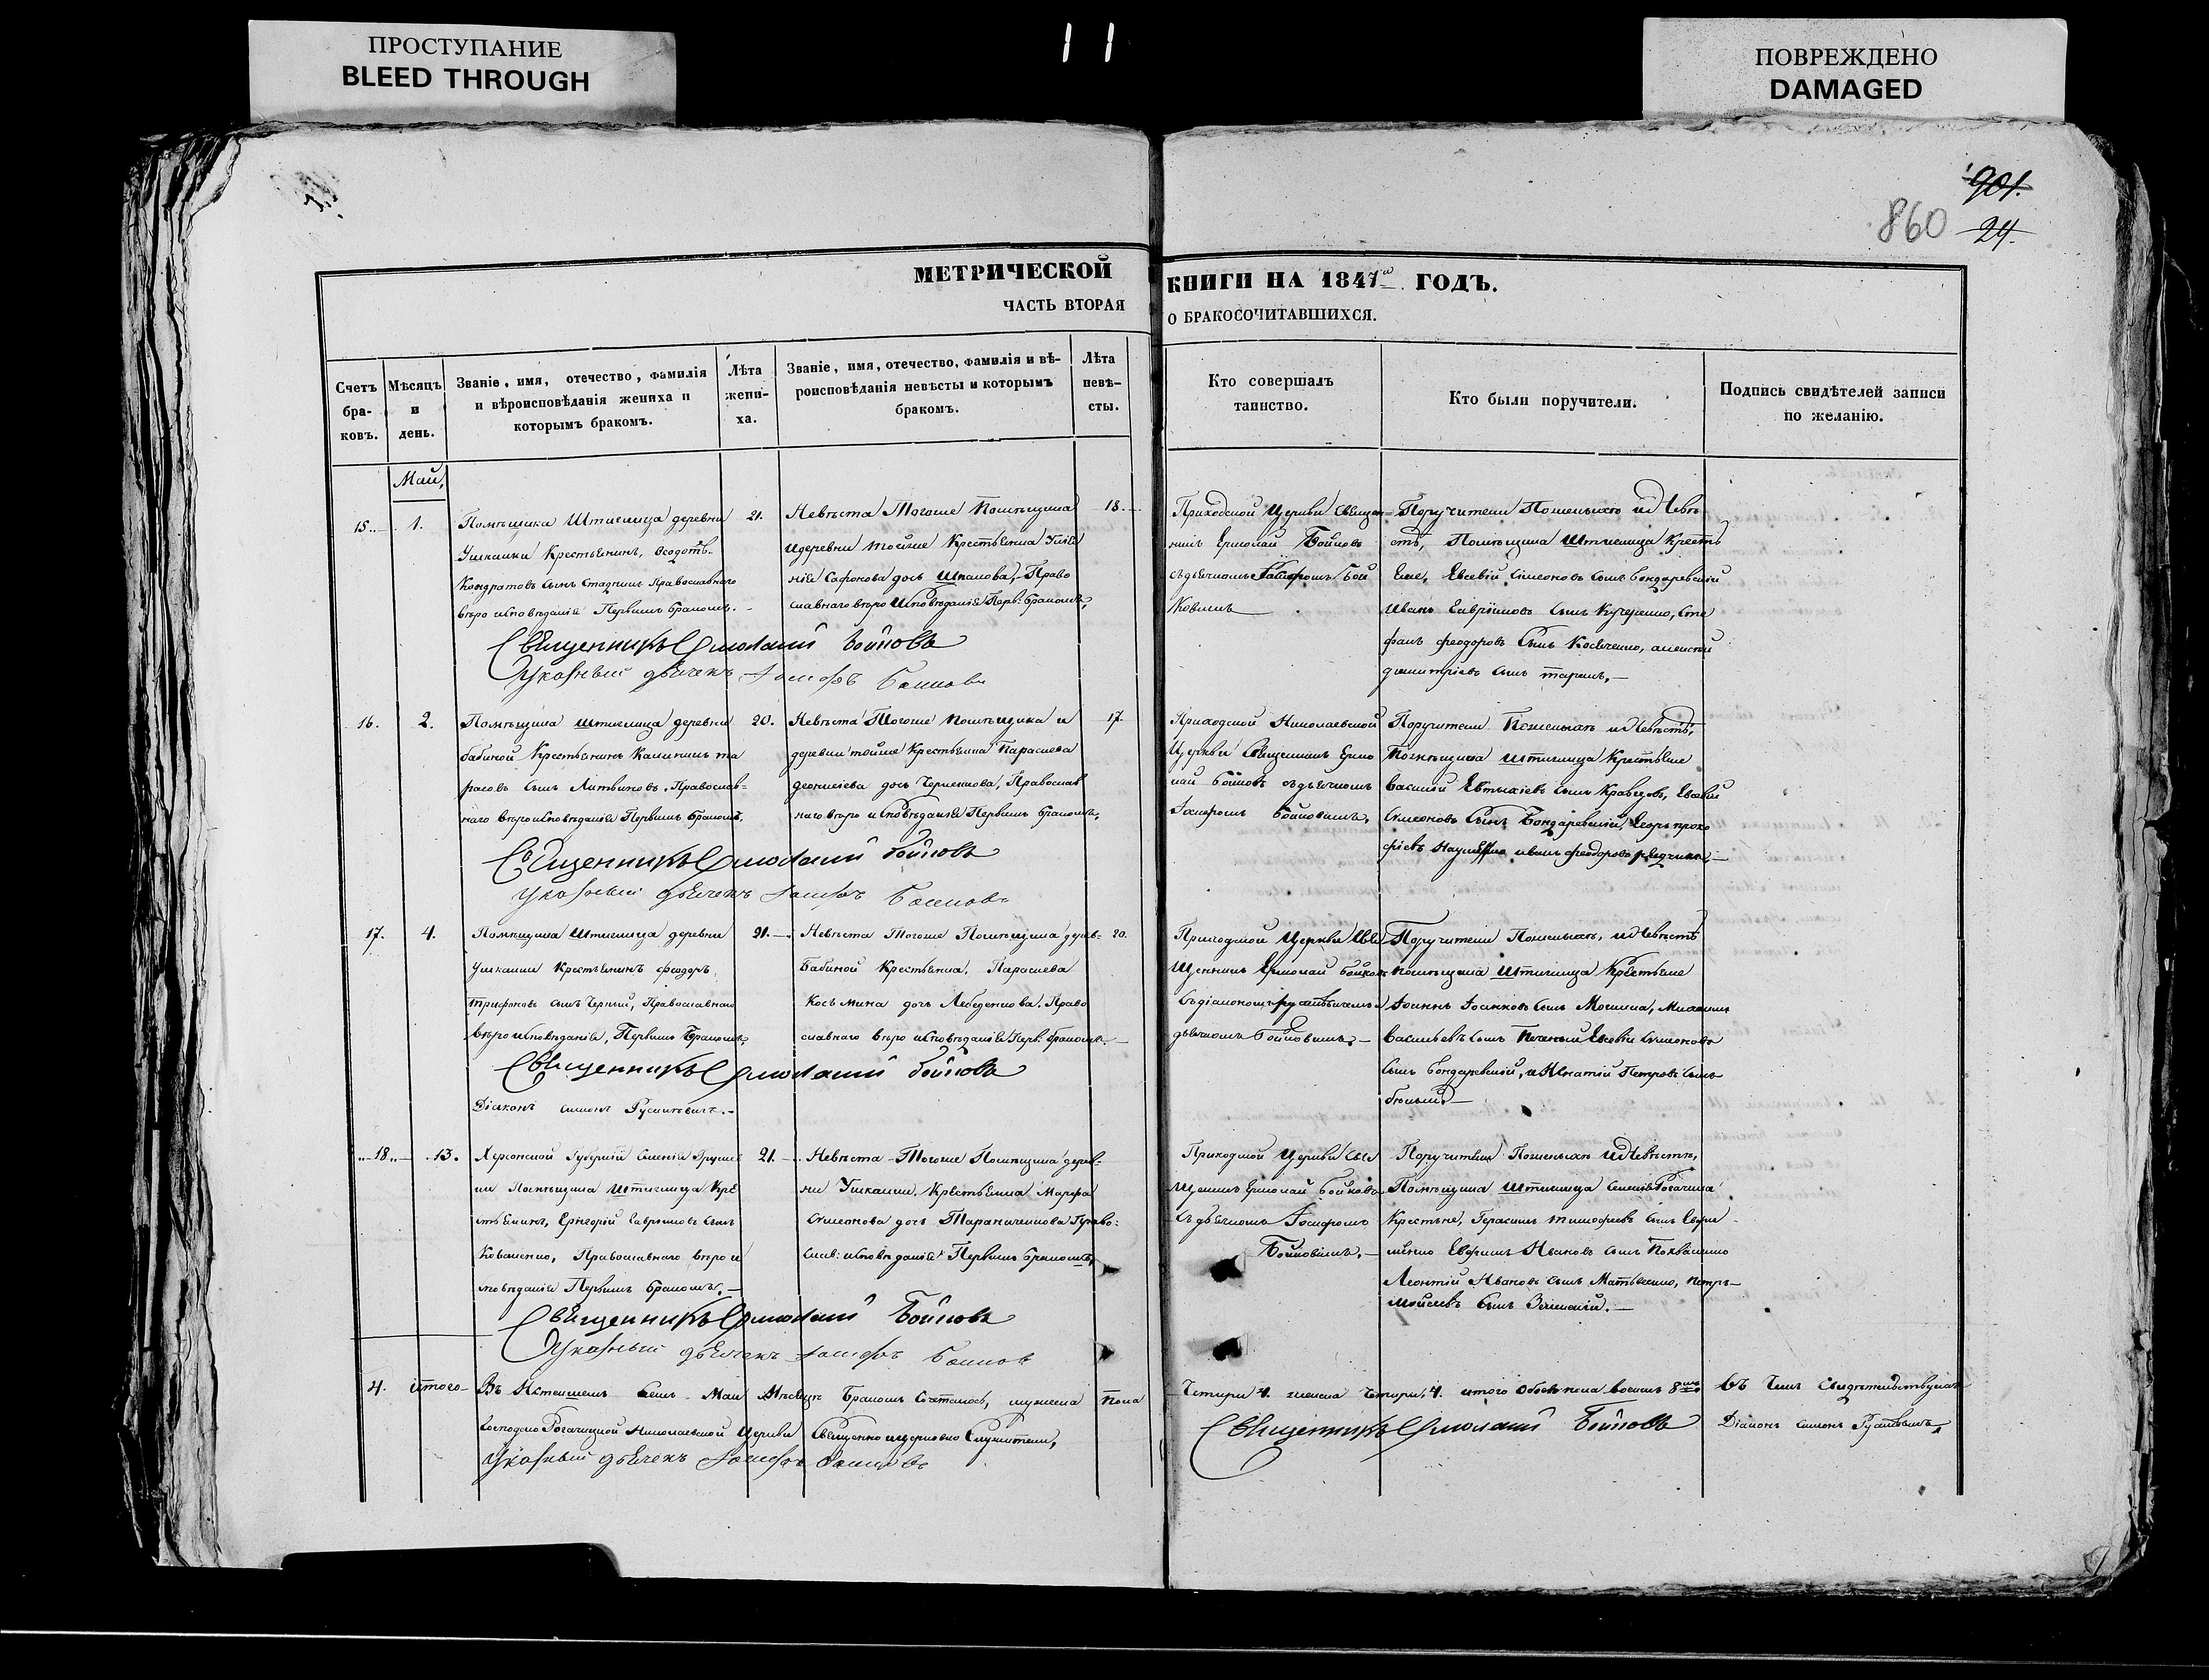 ПРОСТУПАНИЕ
BLEED THROUGH
11
ПОВРЕЖДЕНО
DAMAGED
901.
860 24.
МЕТРИЧЕСКОЙ КНИГИ НА 1847й ГОДЪ.
ЧАСТЬ ВТОРАЯ О БРАКОСОЧИТАВШИХСЯ.
Счетъ бра-ковъ.
Мѣсяцъ и день.
Званіе, имя, отечество, фамилія
и вѣроисповѣданія жениха и
которымъ бракомъ.
Лѣта жени-ха.
Званіе, имя, отечество, фамилія и вѣ-
роисповѣданія невѣсты и которымъ
бракомъ.
Лѣта невѣ-сты.
Кто совершалъ
таинство.
Кто были поручители.
Подпись свидѣтелей записи
по желанію.
Май,
15. 1.
Помѣщика Штиглица деревни
Ушкалки Крестьянинъ, Ѳеодотъ
Кондратовъ сынъ Стадникъ Православнаго
вѣроисповѣданія Первымъ бракомъ.
21.
Невѣста Тогоже Помѣщика
и деревни тойже Крестьянка
Сафонова дочь Шпакова, Право
славнаго вѣроисповѣданія Перв: бракомъ,
18.
Приходской Церкви Священ-
никъ Ермолай Бойковъ
съ дьячкомъ Іосифомъ Бой
ковымъ
Поручители По женихѣ и Невѣ
стѣ, Помѣщика Штиглица Крестья
не, Евсевій Симеоновъ сынъ Бондаревскій
Иванъ Гавріиловъ сынъ Кучеренко, Сте
фанъ Феодоровъ сынъ Косвченко, алексѣй
димитріевъ сынъ таранъ.
Священникъ Ермолай Бойковъ
Указный дьячекъ Іосифъ Бойковъ
16. 2.
Помѣщика Штиглица деревни
бабиной Крестьянинъ Калиникъ та
расовъ сынъ Литвиновъ, Православ-
наго вѣроисповѣданія Первымъ бракомъ.
20.
Невѣста Тогоже помѣщика и
деревни тойже Крестьянка Параскева
деонисіева дочь Чернекова, Православ
наго вѣроисповѣданія Первымъ бракомъ.
17.
Приходской Николаевской
Церкви Священникъ Ермо
лай Бойковъ съ дьячкомъ
Іосифомъ Бойковымъ.
Поручители По женихѣ и Невѣстѣ,
Помѣщика Штиглица Крестьяне
Василій Евтихіевъ сынъ Кравцовъ, Евсевій
Симеоновъ Сынъ Бондаревскій, Егоръ проко
фіевъ Науменко иванъ феодоровъ
Священникъ Ермолай Бойковъ
Указный дьячекъ Іосифъ Бойковъ
17. 4.
Помѣщика Штиглица деревни
Ушкалки Крестьянинъ Феодоръ
трифоновъ сынъ Черный, Православнаго
вѣроисповѣданія, Первымъ бракомъ.
21.
Невѣста Тогоже Помѣщика дерев-
Бабиной Крестьянка, Параскева
Косьмина дочь Лебеденкова. Право
славнаго вѣроисповѣданія Перв: бракомъ.
20.
Приходской Церкви Свя
щенникъ Ермолай Бойковъ
съ діакономъ и
дьячкомъ Бойковымъ.
Поручители По женихѣ, и Невѣстѣ
помѣщика Штиглица Крестьяне
Іоаннъ Іоанновъ сынъ Могила, Михаилъ
Васильевъ сынъ Печеный Евсевій Симеоновъ
сынъ Бондаревскій, и Игнатій Петровъ сынъ
бѣлый.
Священникъ Ермолай Бойковъ
Діаконъ Симонъ
18. 13.
Херсонской Губерніи Селенія Грушев
ки Помѣщика Штиглица Кре
стьянинъ, Григорій Гавриловъ сынъ
Коваленко, Православнаго вѣрои
сповѣданія Первымъ бракомъ.
21.
Невѣста Тогоже Помѣщика дерев-
ни Ушкалки, Крестьянка Марфа
Симеонова дочь Тараниченкова Право:
слав: исповѣданія Первымъ бракомъ,
Приходской Церкви Свя
щенникъ Ермолай Бойковъ
съ дьячкомъ Іосифомъ
Бойковымъ.
Поручители По женихѣ и Невѣстѣ,
Помѣщика Штиглица Селенія Рогачика
Крестьяне, Герасимъ тимофеевъ сынъ
Ефимъ Ивановъ сынъ
Леонтій Ивановъ сынъ Матвеенко, Петръ
Мойсеевъ сынъ
Священникъ Ермолай Бойковъ
Указный дьячекъ Іосифъ Бойковъ
4. итого
Въ Истекшемъ семъ Маи Мѣсяцѣ Бракомъ Сочеталось, мужеска пола Четыри 4. женска Четыри, 4. итого обоего пола восемь 8мь Въ чемъ Свидѣтельствуемъ
Рогачицкой Николаевской Церкви Священно церковно Служители, Священникъ Ермолай Бойковъ Діаконъ Симонъ
Указный дьячекъ Іосифъ Бойковъ